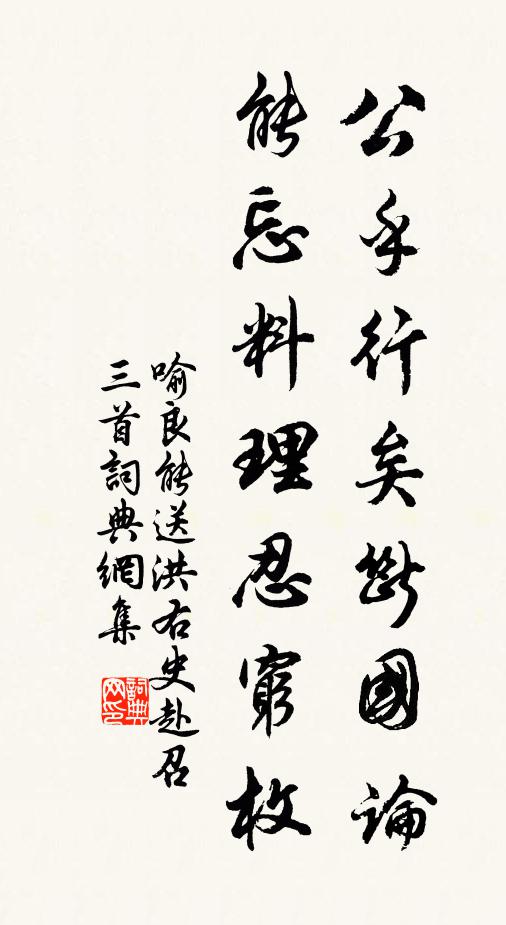 公乎行矣斷國論
能忘料理忍窮枚
喻良能送洪右史赴召
三首詞典網集
詞典网印